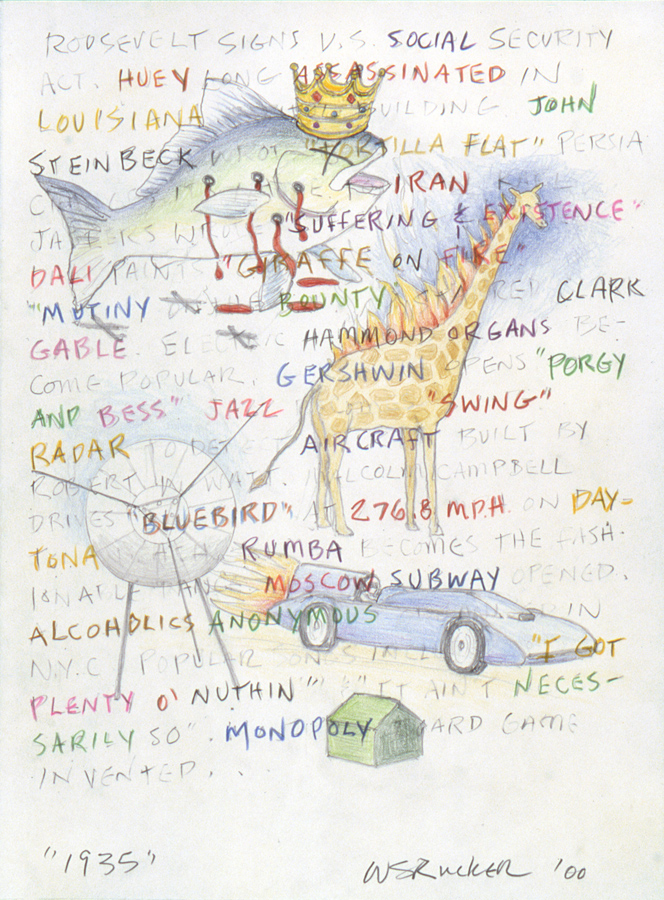 ROOSEVELT SIGNS U.S. SOCIAL SECURITY
ACT. HUEY LONG ASSASSINATED IN
LOUISIANA BUILDING JOHN
STEINBECK WROTE "TORTILLA FLAT" PERSIA
CHANGES IRAN KARL
JASPERS WROTE "SUFFERING & EXISTENCE"
DALI PAINTS "GIRAFFE ON FIRE"
"MUTINY ON THE BOUNTY" CLARK
GABLE. ELECTRIC HAMMOND ORGANS BE-
COME POPULAR. GERSHWIN OPENS "PORGY
AND BESS" JAZZ "SWING"
RADAR TO DETECT AIRCRAFT BUILT BY
ROBERT W. WATT. MALCOLM CAMPBELL
DRIVES "BLUEBIRD" AT 276.8 M.P.H. ON DAY-
TONA BEACH. RUMBA BECOMES THE FASH-
IONABLE DANCE MOSCOW SUBWAY OPENED.
ALCOHOLICS ANONYMOUS IN
N.Y.C POPULAR SONGS INCLUDE "I GOT
PLENTY O' NUTHIN'" & "IT AIN'T NECES-
SARILY SO". MONOPOLY BOARD GAME
INVENTED...
"1935"
WSRUCKER '00